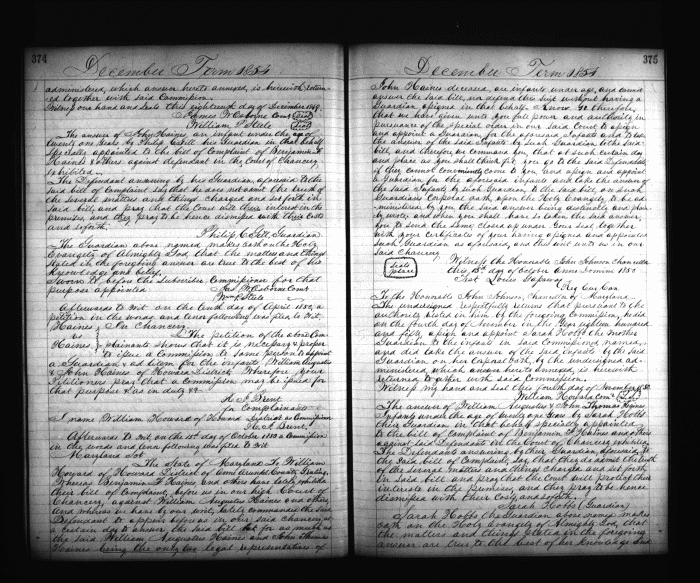 374
December Term 1854
administered, which answer hereto annexed, is herewith return
ed together with said Commission.
Witness our hand and seals this eighteenth day of December 1849
James W Osborne Comr (Seal)
William P Steele (Seal)
The answer of John Haines an infant under the age of
twenty one years by Philip C Gill his Guardian in that behalf
specially appointed to the bill of Complaint of Benjamin F
Haines & others against defendant in the Court of Chancery
exhibited.
The Defendant answering by his Guardian aforesaid to the
said bill of Complaint say that he does not admit the truth of
the several matters and things charged and set forth in
said bill, and pray that the Court will their interest in the
premises, and they pray to be hence dismissed with their costs
and so forth.
Philip C Gill, Guardian
The Guardian above named makes oath on the Holy
Evangely of Almighty God that the matters and things
stated in the foregoing answer are true to the best of his
Knowledge and belief.
Sworn to before the Subscriber, Commissioner for that
purpose appointed
Jas W Osborne Comr.
Wm P Steele
Afterwards to wit on the tenth day of April 1850, a
petition in the words and tenor following was filed to wit,
Haines In Chancery
vs The petition of the above Com
Haines plainants shows that it is necessary & proper
to issue a Commission to some person to appoint
a Guardian ad litem for the infants, William Augustus
& John Haines of Howard District. Wherefore your
Petitioners pray that a Commission may be issued for
that purpose & as in duty &c
H. F. Brent
for Complainants
I name William Howard of Howard District as Commissioner
H. F. Brent.
Afterwards to wit, on the 15th day of October 1850 a Commission
in the words and tenor following was filed to wit
Maryland Sct.
The State of Maryland To William
Howard of Howard District of Anne Arundel County, Greeting,
Whereas Benjamin F Haines and others lately exhibited
their bill of Complaint before us in our high Court of
Chancery, against William Augustus Haines and others
And whereas we have by our writ, lately commanded the said
Defendant to appear before us in our said Chancery, at
a certain day to answer the said bill and for as much as
the said William Augustus Haines and John Thomas
Haines being the only two legal representatives of
375
December Term 1854
John Haines deceased, are infants under age, and cannot
answer the said bill, nor defend this suit without having a
Guardian assigned in that behalf. Know Ye therefore,
that we have given unto you full power and authority in
pursuance of the special order in our said Court to assign
and appoint a Guardian for the aforesaid infants and to take
the answer of the said infants by such Guardian to the said
bill, and therefore we command you, that at such certain day
and place as you shall think fit, you go to the said Defendants
if they cannot conveniently come to you and assign and appoint
a Guardian for the aforesaid infants and take the answer of
the said Infants by such Guardian, to the said bill, on such
Guardians Corporal oath, upon the Holy Evangely, to be ad
ministered by you the said answer being distinctly and plain
ly wrote, and when you shall have so taken the said answer,
you to send the same, closed up under your seal, together
with your certificate of your having assigned and appointed
such Guardian as aforesaid, and this writ unto us in our
said Chancery.
Witness the Honorable John Johnson Chancellor
this 15th day of October Anno Domini 1850
Seal
place
Test Louis Gassaway
Reg Cur Can
To the Honorable John Johnson, Chancellor of Maryland
The undersigned respectfully returns that pursuant to the
authority vested in him by the foregoing Commission, he did
on the fourth day of November in the Year eighteen hundred
and fifty, assign and appoint Sarah Hobbs the mother
Guardian to the infants in said Commission named,
and did take the answer of the said infants by the said
Guardian on her Corporal oath, by the undersigned ad-
ministered which answer hereto annexed, is herewith
returned together with said Commission.
Witness my hand and seal this fourth day of November 1850
William Howard Comr (Seal)
The answer of William Augustus & John Thomas Haines
Infants under the age of twenty one Years by Sarah Hobbs
their Guardian in that behalf specially appointed
to the bill of Complaint of Benjamin F Haines and others
against said Defendants in the Court of Chancery exhibited.
The Defendants answering by their Guardian aforesaid to
the said bill of Complaint, say that they do admit the truth
of the several matters and things charged and set forth
in said bill and pray that the Court will protect their
interests in the Premises, and they pray to be hence
dismissed with their Costs, and so forth.
Sarah Hobbs (Guardian)
Sarah Hobbs the Guardian above named makes
oath on the Holy Evangely of Almighty God, that
the matters and things stated in the foregoing
answer are true to the best of her Knowledge and